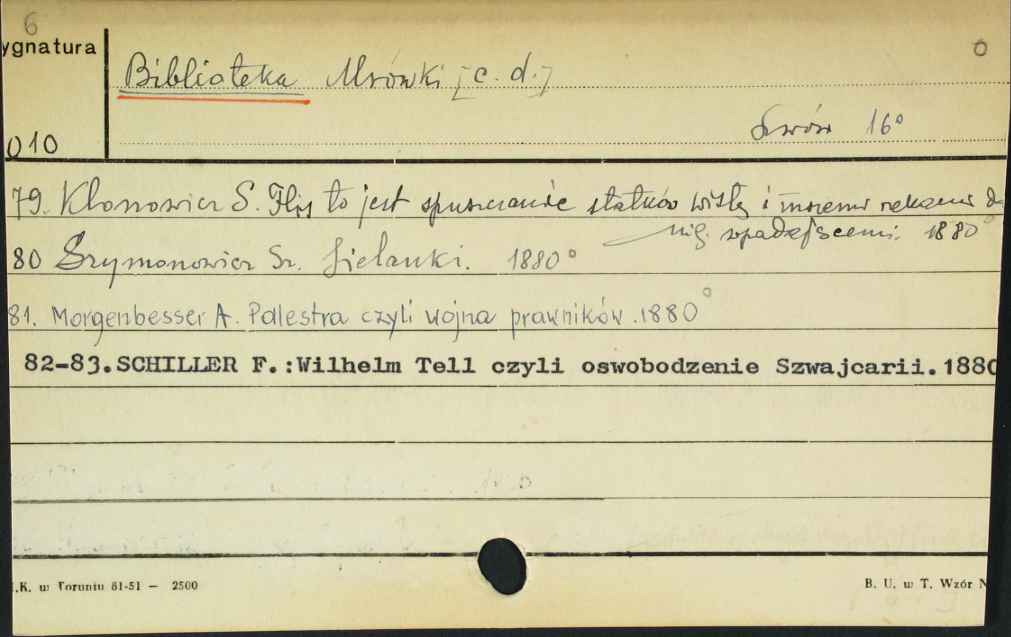 6
ygnatura
o
Biblioteka Mrówki [c. d.]
010
Lwów 16°
79. Klonowicz S. Flis to jest spuszczanie statków Wisłą i inszemi rzekami do
nię wpadającemi. 1880°
80 Szymonowicz Sz. Sielanki. 1880°
81. Morgenbesser A. Palestra czyli wojna prawników. 1880°
82-83. SCHILLER F.: Wilhelm Tell czyli oswobodzenie Szwajcarii. 1880
.K. w Toruniu 81-51 — 2500
B. U. w T. Wzór N